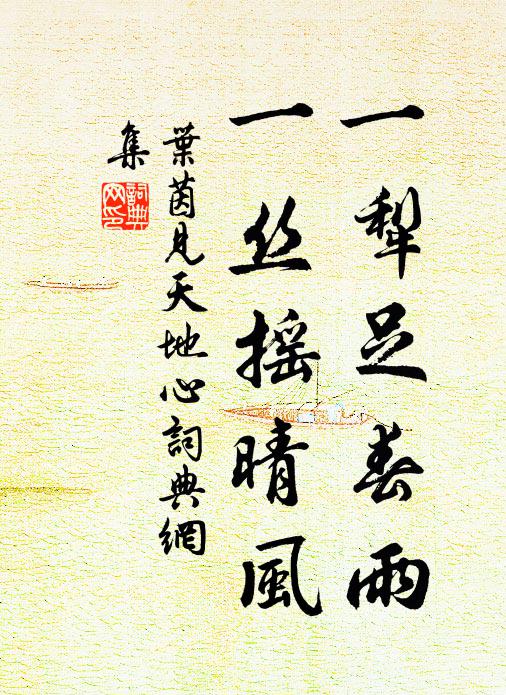 一犁足春雨
一丝摇晴風
葉茵見天地心詞典網
集
詞典
网印